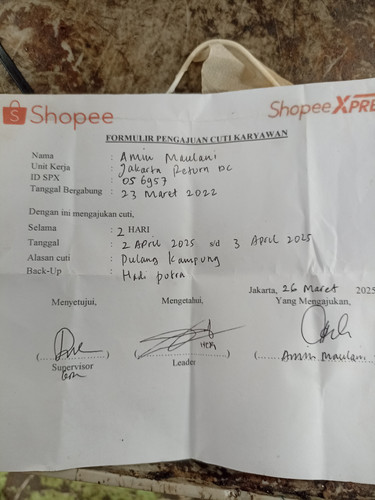 Shopee
Shopee XPRE
FORMULIR PENGAJUAN CUTI KARYAWAN
Nama : Amin Maulani
Unit Kerja : Jakarta Return DC
ID SPX : 056957
Tanggal Bergabung : 23 Maret 2022
Dengan ini mengajukan cuti,
Selama : 2 HARI
Tanggal : 2 April 2025 s/d 3 April 2025
Alasan cuti : Pulang Kampung
Back-Up : Hadi putra
Jakarta, 26 Maret 2025
Menyetujui, Mengetahui, Yang Mengajukan,
(..............) (..............) (....... Amin Maulani
Supervisor Leader